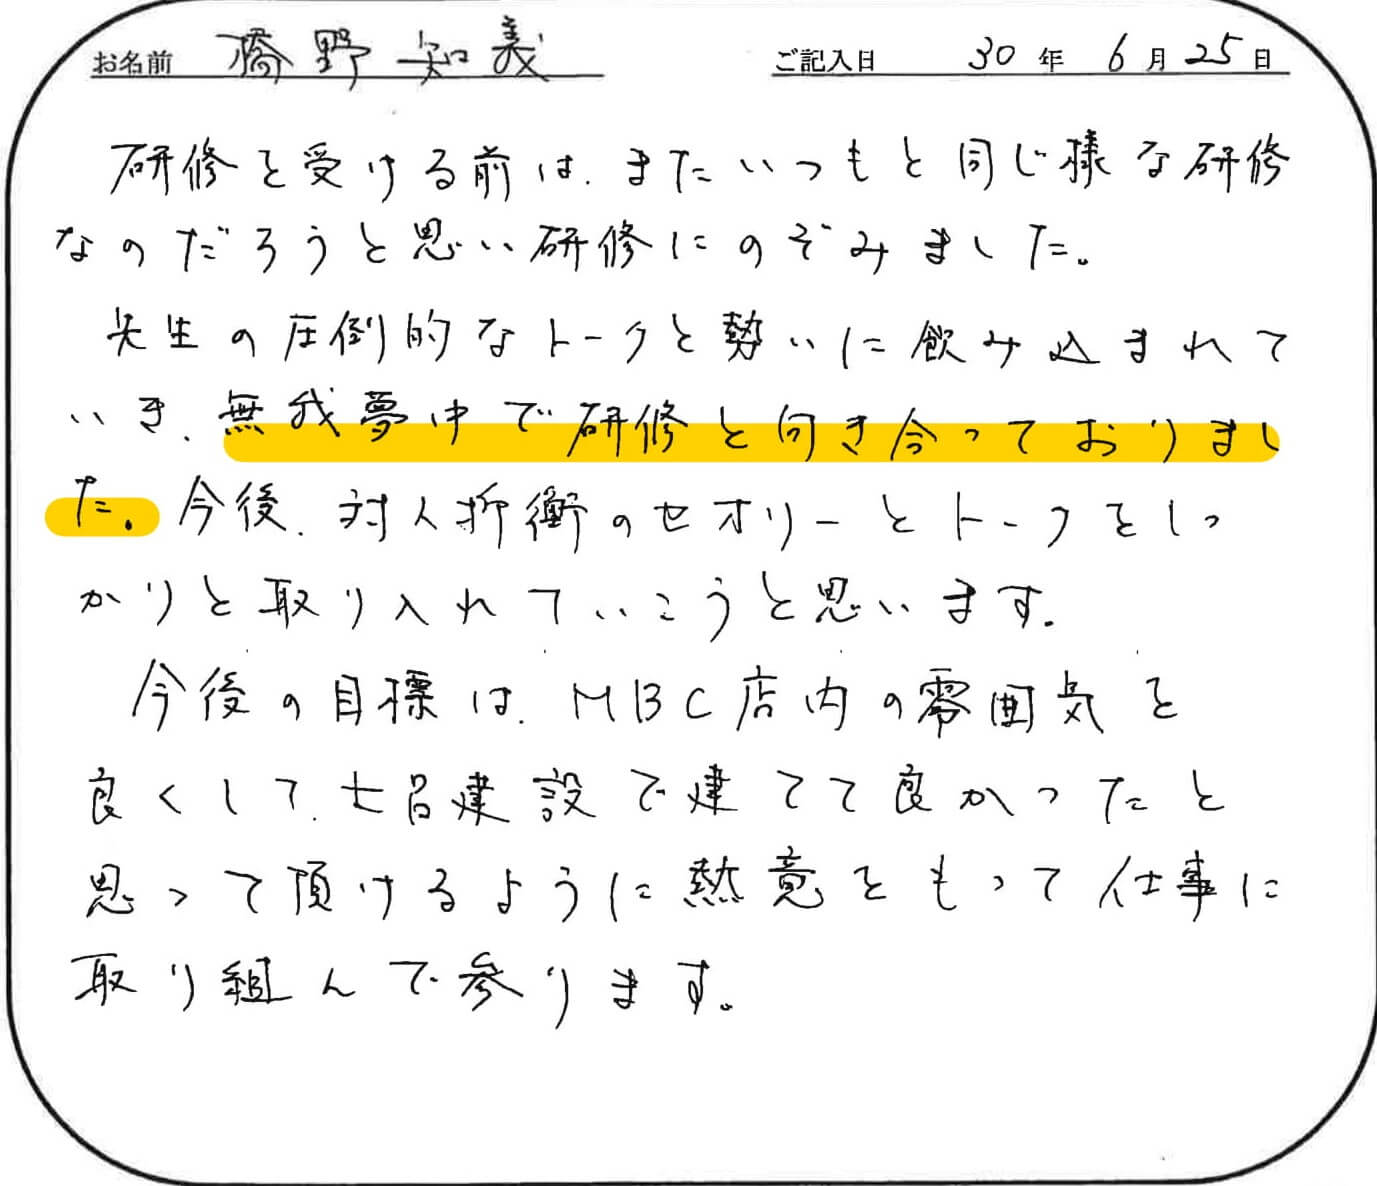 お名前 橋野 知義 ご記入日 30年 6月25日
研修を受ける前は、またいつもと同じ様な研修
なのだろうと思い研修にのぞみました。
先生の圧倒的なトークと勢いに飲み込まれて
いき、無我夢中で研修と向き合っておりまし
た。今後、対人折衝のセオリーとトークをしっ
かりと取り入れていこうと思います。
今後の目標は、MBC店内の雰囲気を
良くして、七呂建設で建てて良かったと
思って頂けるように熱意をもって仕事に
取り組んで参ります。